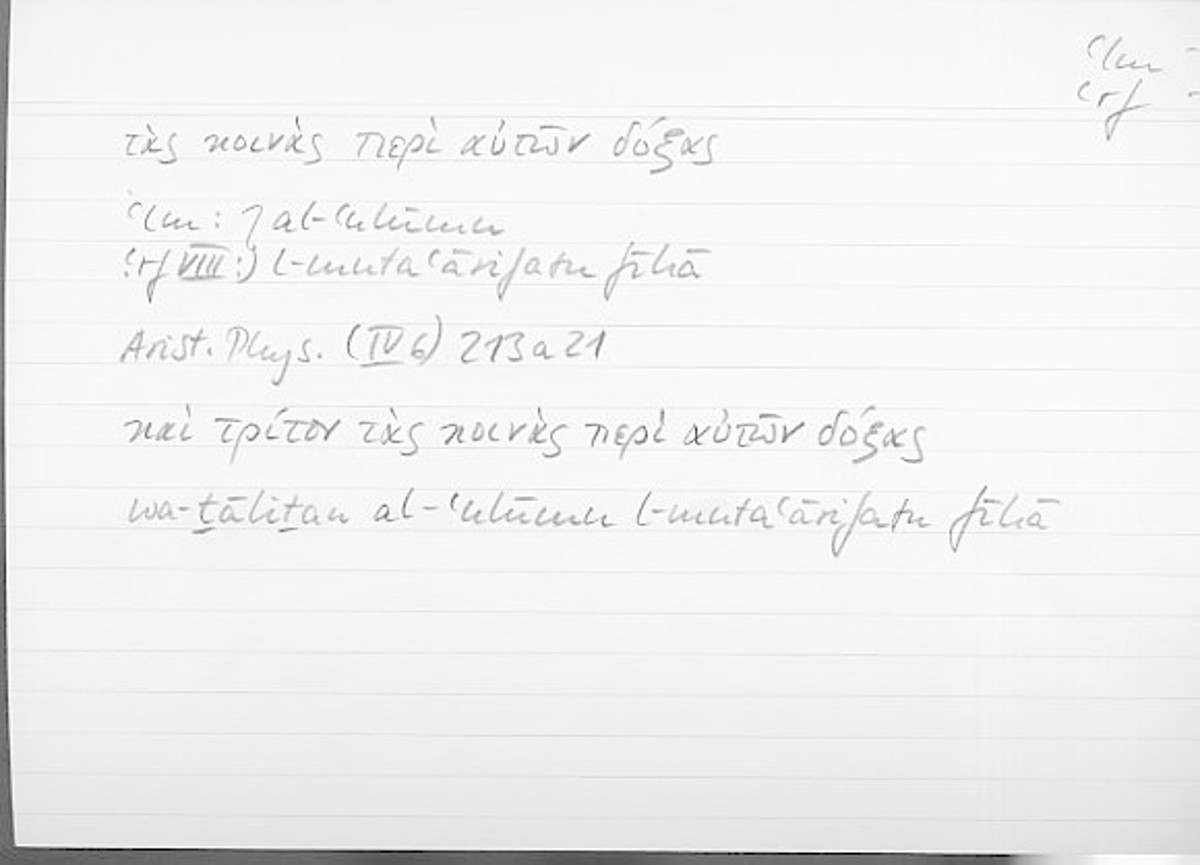 ʿlm
ʿrf
τὰς κοινὰς περὶ αὐτῶν δόξας
ʿlm: } al-ʿulūmu
ʿrf VIII: } l-mutaʿārifatu fīhā
Arist. Phys. (IV 6) 213 a 21
καὶ τρίτον τὰς κοινὰς περὶ αὐτῶν δόξας
wa-ṯāliṯan al-ʿulūmu l-mutaʿārifatu fīhā